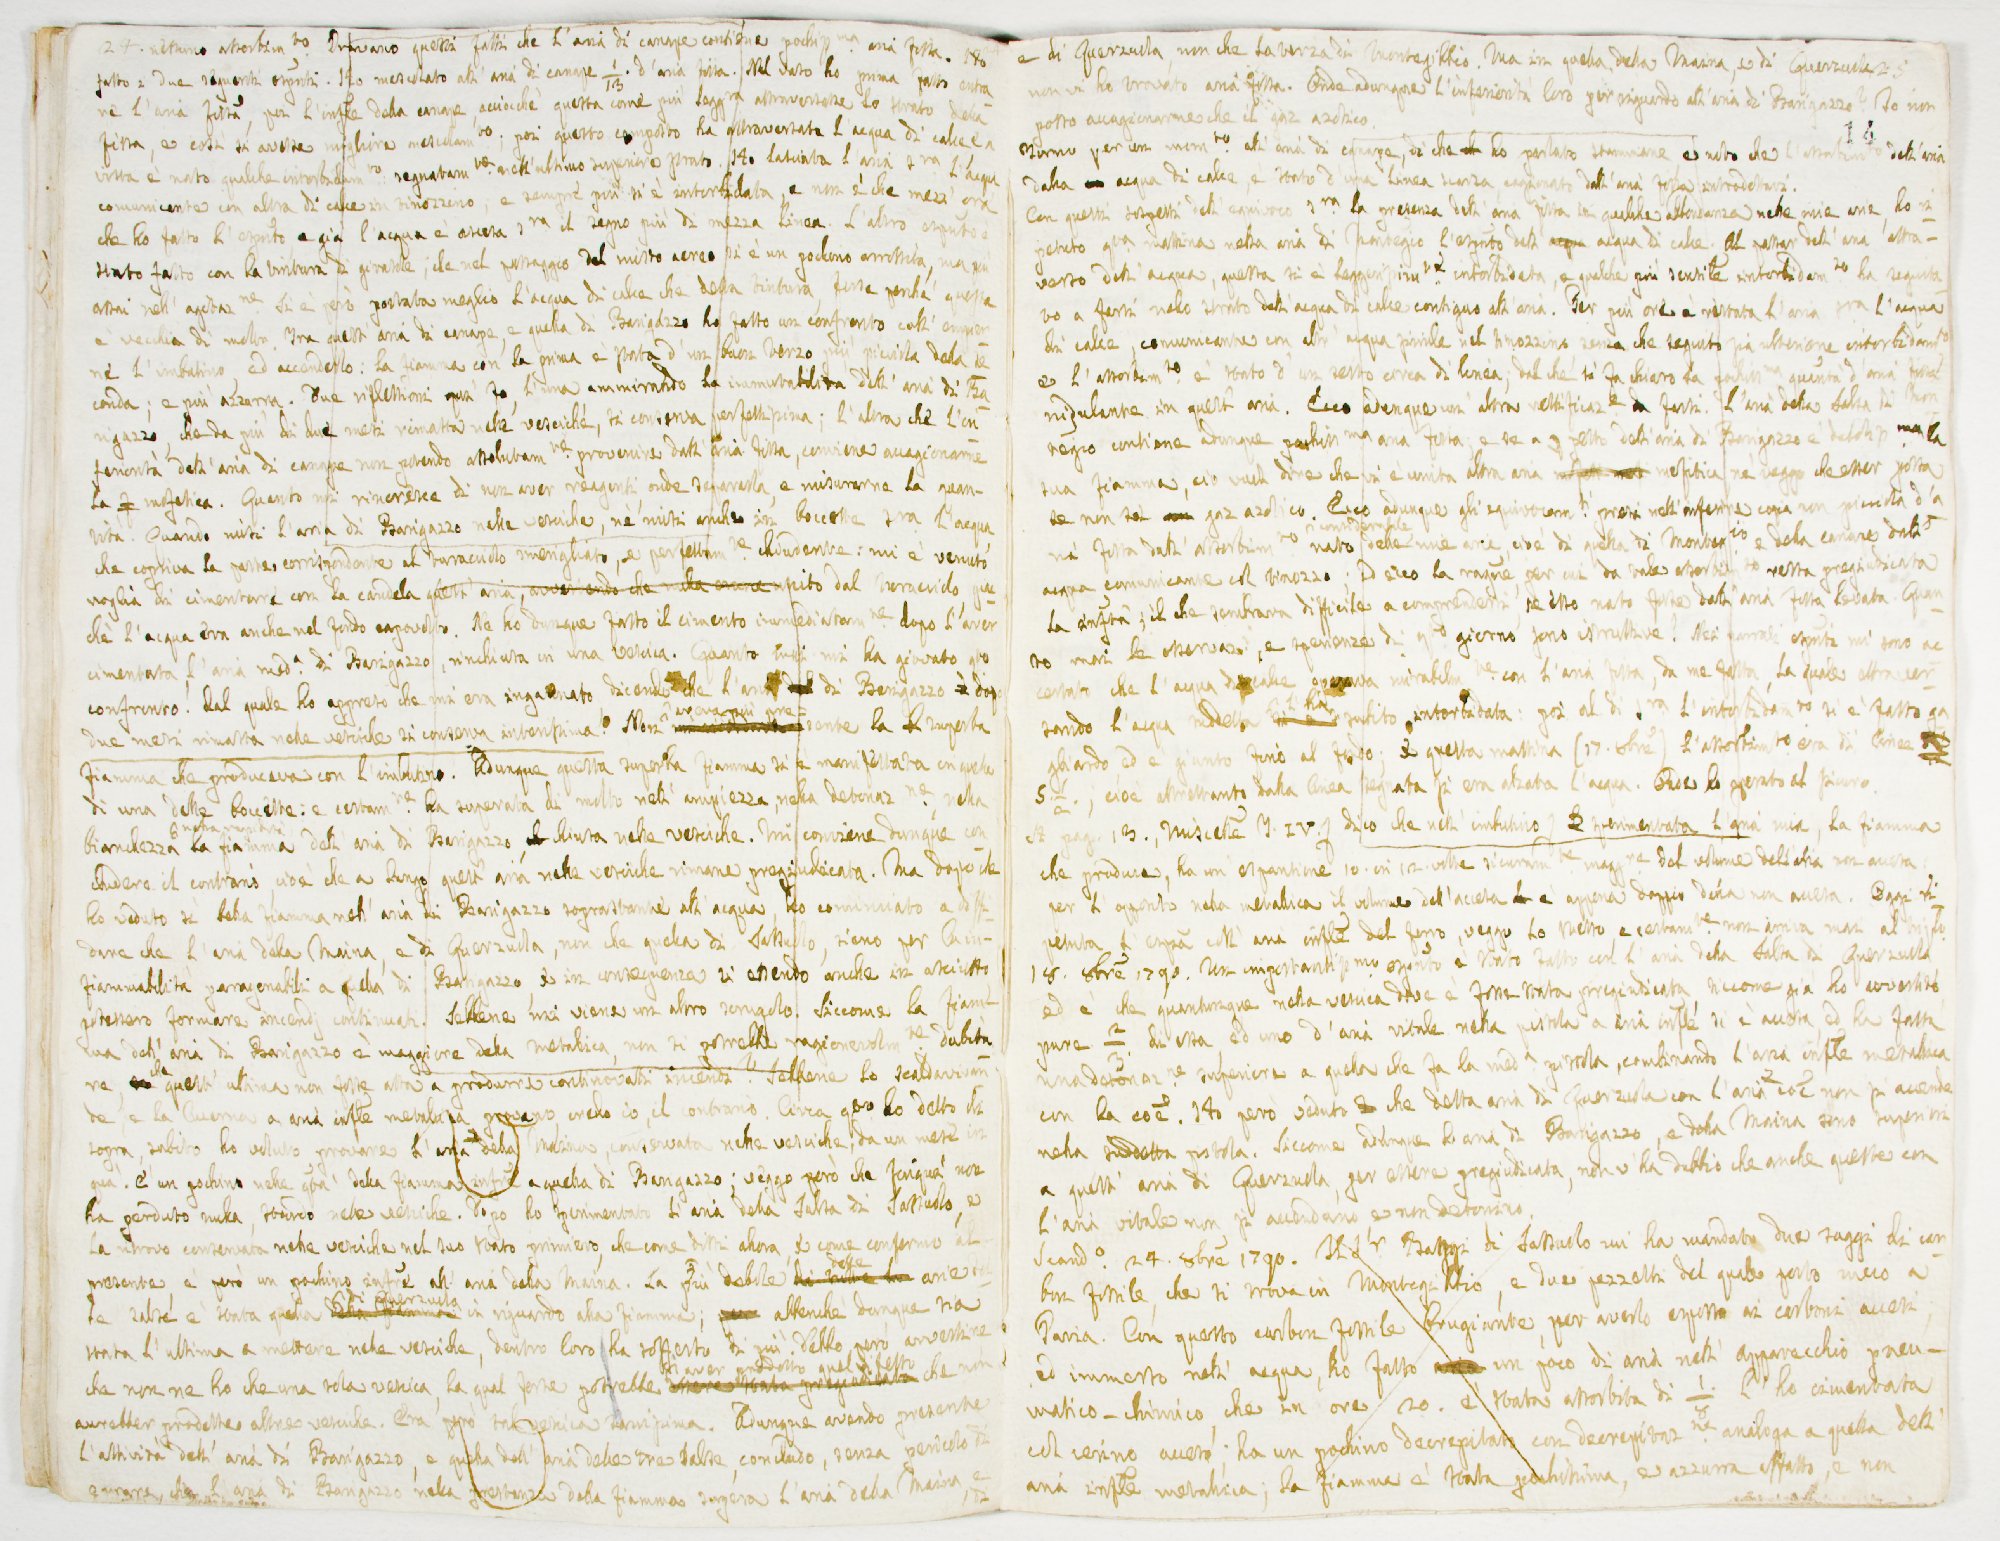 24. nessuno assorbim.to Provano questi fatti che l'aria di canape contiene pochiss.ma aria fissa. Ho
fatto i due seguenti esp.nti. Ho mescolato all'aria di canape 1/13. d'aria fissa. Nel vaso ho prima fatto entra-
re l'aria fissa, poi l'infle della canape, acciocchè questa come più leggra attraversasse lo strato della
fissa, e così si avesse migliore mescolam.to; poi questo composto ha attraversata l'acqua di calce e
vista è nato qualche intorbidam.to segnatam.te nell'ultimo superiore strato. Ho lasciata l'aria s.ra l'acqua
comunicante con altra di calce in tinozzino; e sempre più si è intorbidata, e non è che mezz'ora
che ho fatto l'esp.nto e già l'acqua è ascesa s.ra il segno più di mezza linea. L'altro esp.nto è
stato fatto con la tintura di girasole; che nel passaggio del misto aereo si è un pochino arrossita, ma più
assai nell'agitaz.ne Si è però portata meglio l'acqua di calce che detta tintura, forse perchè questa
è vecchia di molto. Tra quest'aria di canape, e quella di Barigazzo ho fatto un confronto coll'empier-
ne l'imbutino ed accenderlo: la fiamma con la prima è stata d'un buon terzo più piccola della se-
conda; e più azzurra. Due riflessioni qui fo, l'una ammirando la inmutabilità dell'aria di Ba-
rigazzo, che da più di due mesi rimasta nelle vesciche, si conserva perfettissima; l'altra che l'in-
feriorità dell'aria di canape non potendo assolutam.te provenire dall'aria fissa, conviene accagionarne
la mofetica. Quanto mi rincresce di non aver reagenti onde separarla, e misurarne la quan-
tità. Quando misi l'aria di Barigazzo nelle vesciche, ne misi anche in boccette s.ra l'acqua
che copriva la parte corrispondente al turacciolo smerigliato, e perfettam.te chiudente: mi è venuto
voglia di cimentare con la candela quest'aria, avvertendo che nulla era uscito dal turacciolo, per-
chè l'acqua era anche nel fondo capovolto. Ne ho dunque fatto il cimento immediatam.te dopo l'aver
cimentata l'aria med.a di Barigazzo, rinchiusa in una vescica. Quanto mai mi ha giovato q.to
confronto! Dal quale ho appreso che mi era ingannato dicendo che l'aria di Barigazzo dopo
due mesi rimasta nelle vesciche si conserva intensissima! Non aveva più pre-
sente la superba
fiamma che produceva con l'imbutino. Adunque questa superba fiamma si è manifestata in quella
di una delle boccette: e certam.te ha superata di molto nell'ampiezza, nella detonaz.ne, nella
bianchezza la fiamma dell'aria di Barigazzo, chiusa nelle vesciche. Mi conviene dunque con-
cludere il contrario cioè che a lungo quest'aria nelle vesciche rimane pregiudicata. Ma dopo che
ho veduto sì bella fiamma nell'aria di Barigazzo soprastante all'acqua, ho cominciato a dubi-
tare che l'aria della Maina, e di Querzuola, non che quella di Sassuolo, sieno per l'in-
fiammabilità paragonabili a quella di Barigazzo, e in conseguenza si essendo anche in asciutto
potessero formare incendj continuati. Sebbene mi viene un altro scrupolo. Siccome la fiam-
ma dell'aria di Barigazzo è maggiore della metallica, non si potrebbe ragionevolm.te dubita-
re, che quest'ultima non fosse atta a produrre continovati incendj? Sebbene lo scaldavivan-
de, e la lucerna a aria infle metallica provano, credo io, il contrario. Circa q.to ho detto di
sopra, subito ho voluto provare l'aria della Maina, conservata nelle vesciche, da un mese in
quà. È un pochino nelle q.tà della fiamma infre a quella di Barigazzo; veggo però che finquà non
ha perduto nulla, stando nelle vesciche. Dopo ho sperimentato l'aria della Salsa di Sassuolo, e
la ritrovo conservata nelle vesciche nel suo stato primiero, che come dissi allora e come confermo al
presente, è però un pochino infre all'aria della Maina. La più debile delle arie del-
le salse è stata quella di Querzuola in riguardo alla fiamma; abbenchè dunque sia
stata l'ultima a mettere nelle vesciche, dentro loro ha sofferto di più. Debbo però avvertire
che non ne ho che una sola vescica, la qual forse potrebbe aver prodotto qualche effetto che non
avrebber prodotto altre vesciche. Era però tal vescica sanissima. Adunque avendo presente
l'attività dell'aria di Barigazzo, e quella dell'aria delle tre salse, concludo, senza pericolo di
errare, che l'aria di Barigazzo nella prestanza della fiamma supera l'aria della Maina, e di
e di Querzuola, non che la terza di Montegibbio. Ma in quella della Maina, e di Querzuola 25
non vi ho trovato aria fissa. Onde adunque l'inferiorità loro per riguardo all'aria di Barigazzo? Io non
posso accagionarne che il gaz azotico.
14
Torno per un mom.to all'aria di canape, di che ho parlato stammane e noto che l'assorbim.to dell'aria
dalla acqua di calce, è stato d'una linea scarsa cagionato dall'aria fissa introdottavi.
Con questi sospetti dell'equivoco s.ra la presenza dell'aria fissa in qualche abbondanza nelle mie arie, ho ri-
petuto q.ta mattina nella aria di Montegio l'esp.nto dell'acqua di calce. Al passar dell'aria attra-
verso dell'acqua, questa si è leggerissim.te intorbidata, e qualche più sensibile intorbidam.to ha seguita-
to a farsi nello strato dell'acqua di calce contiguo all'aria. Per più ore è restata l'aria s.ra l'acqua
di calce, comunicante con altr'acqua simile nel tinozzino senza che seguito sia ulteriore intorbidam.to
e l'assorbim.to è stato d'un sesto circa di linea; dal che si fa chiaro la pochiss.ma quantà d'aria fissa
ridulante in quest'aria. Ecco adunque un'altra rettificaz.e da farsi. L'aria della Salsa di Mon-
tegio contiene adunque pochiss.ma aria fissa; e se a petto dell'aria di Barigazzo è deboliss.ma la
sua fiamma, ciò vuol dire che vi è unita altra aria mefitica, nè veggo che esser possa
se non gaz azotico. Ecco adunque gli equivocam.ti presi nell'inferire copia non piccola d'a-
ria fissa dall'assorbim.to considerabile nato delle mie arie, cioè di quella di Monteg.io e della canape dall'
acqua comunicante col tinozzo. Ed ecco la ragne, per cui da tale assorbim.to resta pregiudicata
la infltà; il che sembrava difficile a comprendersi, se esso nato fosse dall'aria fissa levata. Quan-
to mai le osservaz.i, e sperienze di q.to giorno sono istruttive! Nei narrati esp.nti mi sono ac-
certato che l'acqua di calce operava mirabilm.te con l'aria fissa, da me fatta, la quale attraver-
sando l'acqua suddetta l'ha subito intorbidata: poi al di s.ra l'intorbidam.to si è fatto ga-
gliardo ed è giunto fino al fondo; e questa mattina (17. 8bre) l'assorbim.to era di linee
5 1/2; cioè altrettanto dalla linea segnata si era alzata l'acqua. Due ho operato al sicuro.
A pag. 13., Miscella T. IV.) dico che nell'imbutino sperimentata l'aria mia, la fiamma
che produce, ha un'espansione 10. in 12. volte sicuram.te magg.re del volume dell'aria non accesa;
per l'opposito nella metallica il volume dell'accesa è appena doppio della non accesa. Oggi ri-
petuta l'espza coll'aria infle del ferro, veggo lo stesso, e certam.te non arriva mai al triplo.
18. 8bre 1790. Un importantiss.mo esp.nto è stato fatto con l'aria della Salsa di Querzuola
ed è che quantunque nella vescica dove è fosse stata pregiudicata siccome già ho avvertito
pure 2/3 di essa ed uno d'aria vitale nella pistola a aria infle si è accesa, ed ha fatta
una detonaz.ne superiore a quella che fa la med.a pistola, combinando l'aria infle metallica
con la coe. Ho però veduto che detta aria di Querzuola con l'aria coe non si accende
nella suddetta pistola. Siccome adunque l'aria di Barigazzo, e della Maina sono superiori
a quest'aria di Querzuola, per essere pregiudicata, non v'ha dubbio che anche queste con
l'aria vitale non si accendano e non detonino.
Scand.o 24. 8bre 1790. Il S.r Baggi di Sassuolo mi ha mandato due saggi di car-
bon fossile, che si trova in Montegibbio, e due pezzetti del quale porto meco a
Pavia. Con questo carbon fossile brugiante, per averlo esposto ai carboni accesi,
ed immerso nell'acqua, ho fatto un poco di aria nell'apparecchio pneu-
matico-chimico, che in ore 20. è stata assorbita di 1/8. L'ho cimentata
col cerino acceso; ha un pochino decrepitato con decrepitaz.ne analoga a quella dell'
aria infle metallica; la fiamma è stata pochissima, e azzurra affatto, e non